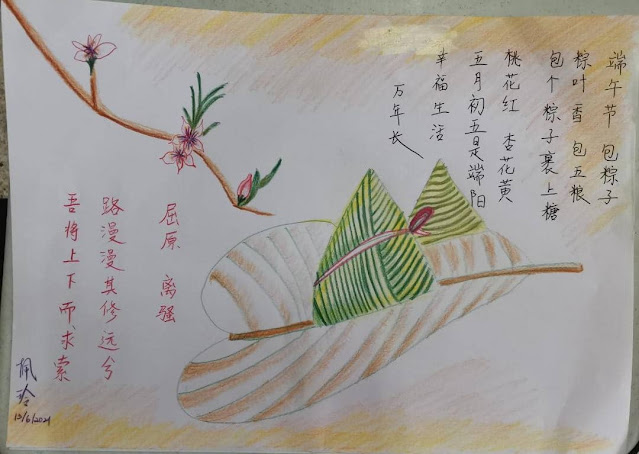 端午节 包粽子
粽叶香 包五粮
包个粽子裹上糖
桃花红 杏花黄
五月初五是端阳
幸福生活
万年长
屈原 离骚
路漫漫其修远兮
吾将上下而求索
佩玲
12/6/2021